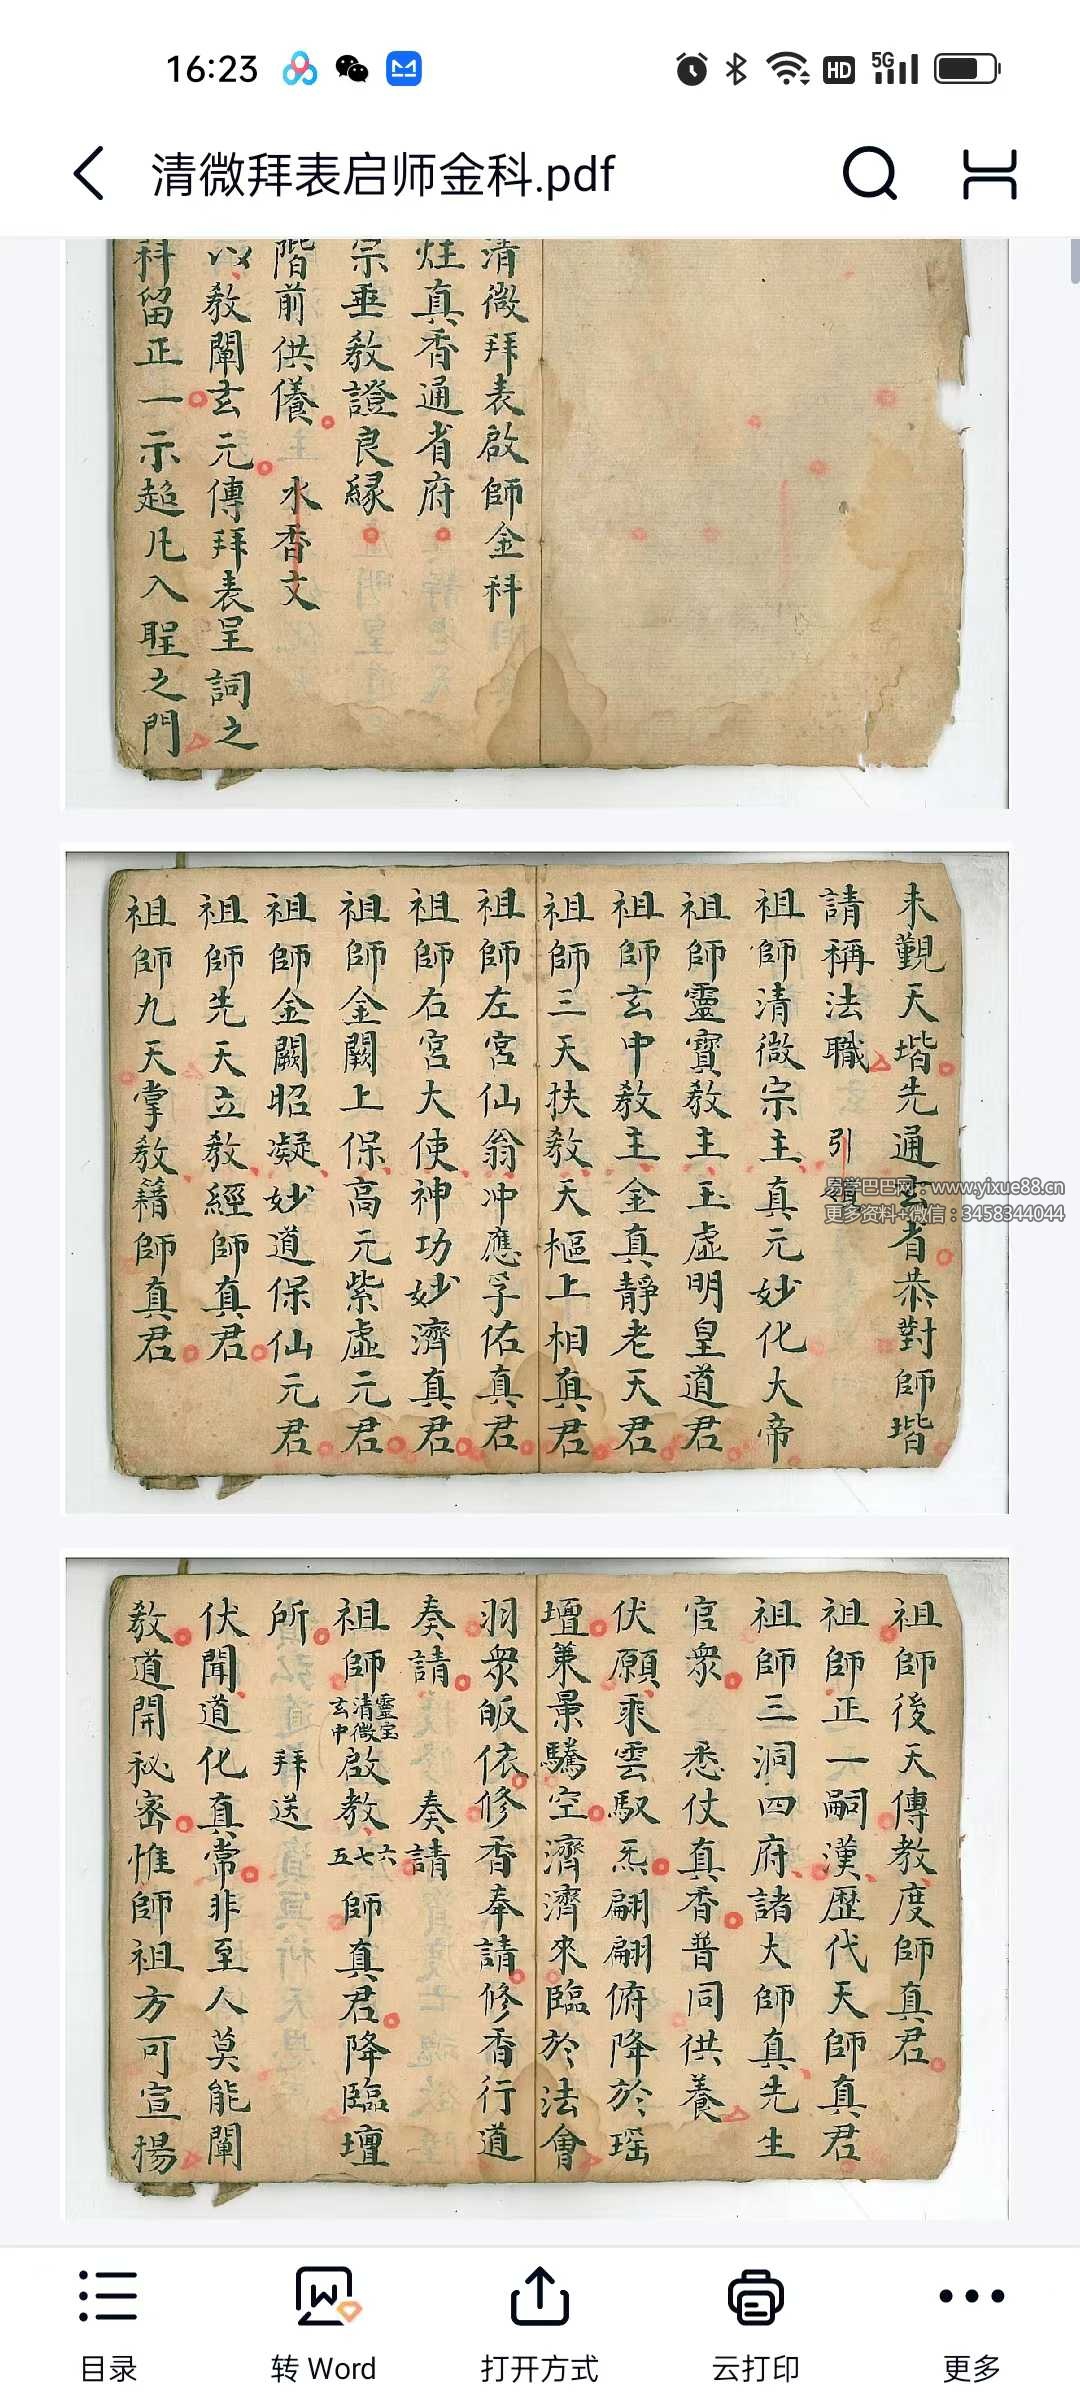 16:23
HD
5G
清微拜表启师金科.pdf
清微拜表啟師金科
炷真香通省府
宗垂教證良緣
階前供養 水香文
以教闡玄元傳拜表呈詞之
科留正一示超凡入聖之門
未觀天堦先通玄省恭對師堦
請稱法職 引
祖師清微宗主真元妙化大帝
祖師靈寶教主玉虛明皇道君
祖師玄中教主金真靜老天君
祖師三天扶教天樞上相真君
祖師左宮仙翁冲應孚佑真君
祖師右宮大使神功妙濟真君
祖師金闕上保高元紫虛元君
祖師金闕昭凝妙道保仙元君
祖師先天立教經師真君
祖師九天掌教籍師真君
易学巴巴网：www.yixue88.cn
更多资料+微信：3458344044
祖師後天傳教度師真君
祖師正一嗣漢歷代天師真君
祖師三洞四府諸大師真先生
官衆 悉仗真香普同供養
伏願乘雲馭炁翩翩俯降於瑶
壇業景驂空濟濟來臨於法會
羽衆皈依修香奉請修香行道
奏請 奏請
祖師靈宝清微玄中啟教六七五師真君降臨壇
所 拜送
伏聞道化真常非至人莫能闡
教道開秘密惟師祖方可宣揚
目录
转 Word
打开方式
云打印
更多